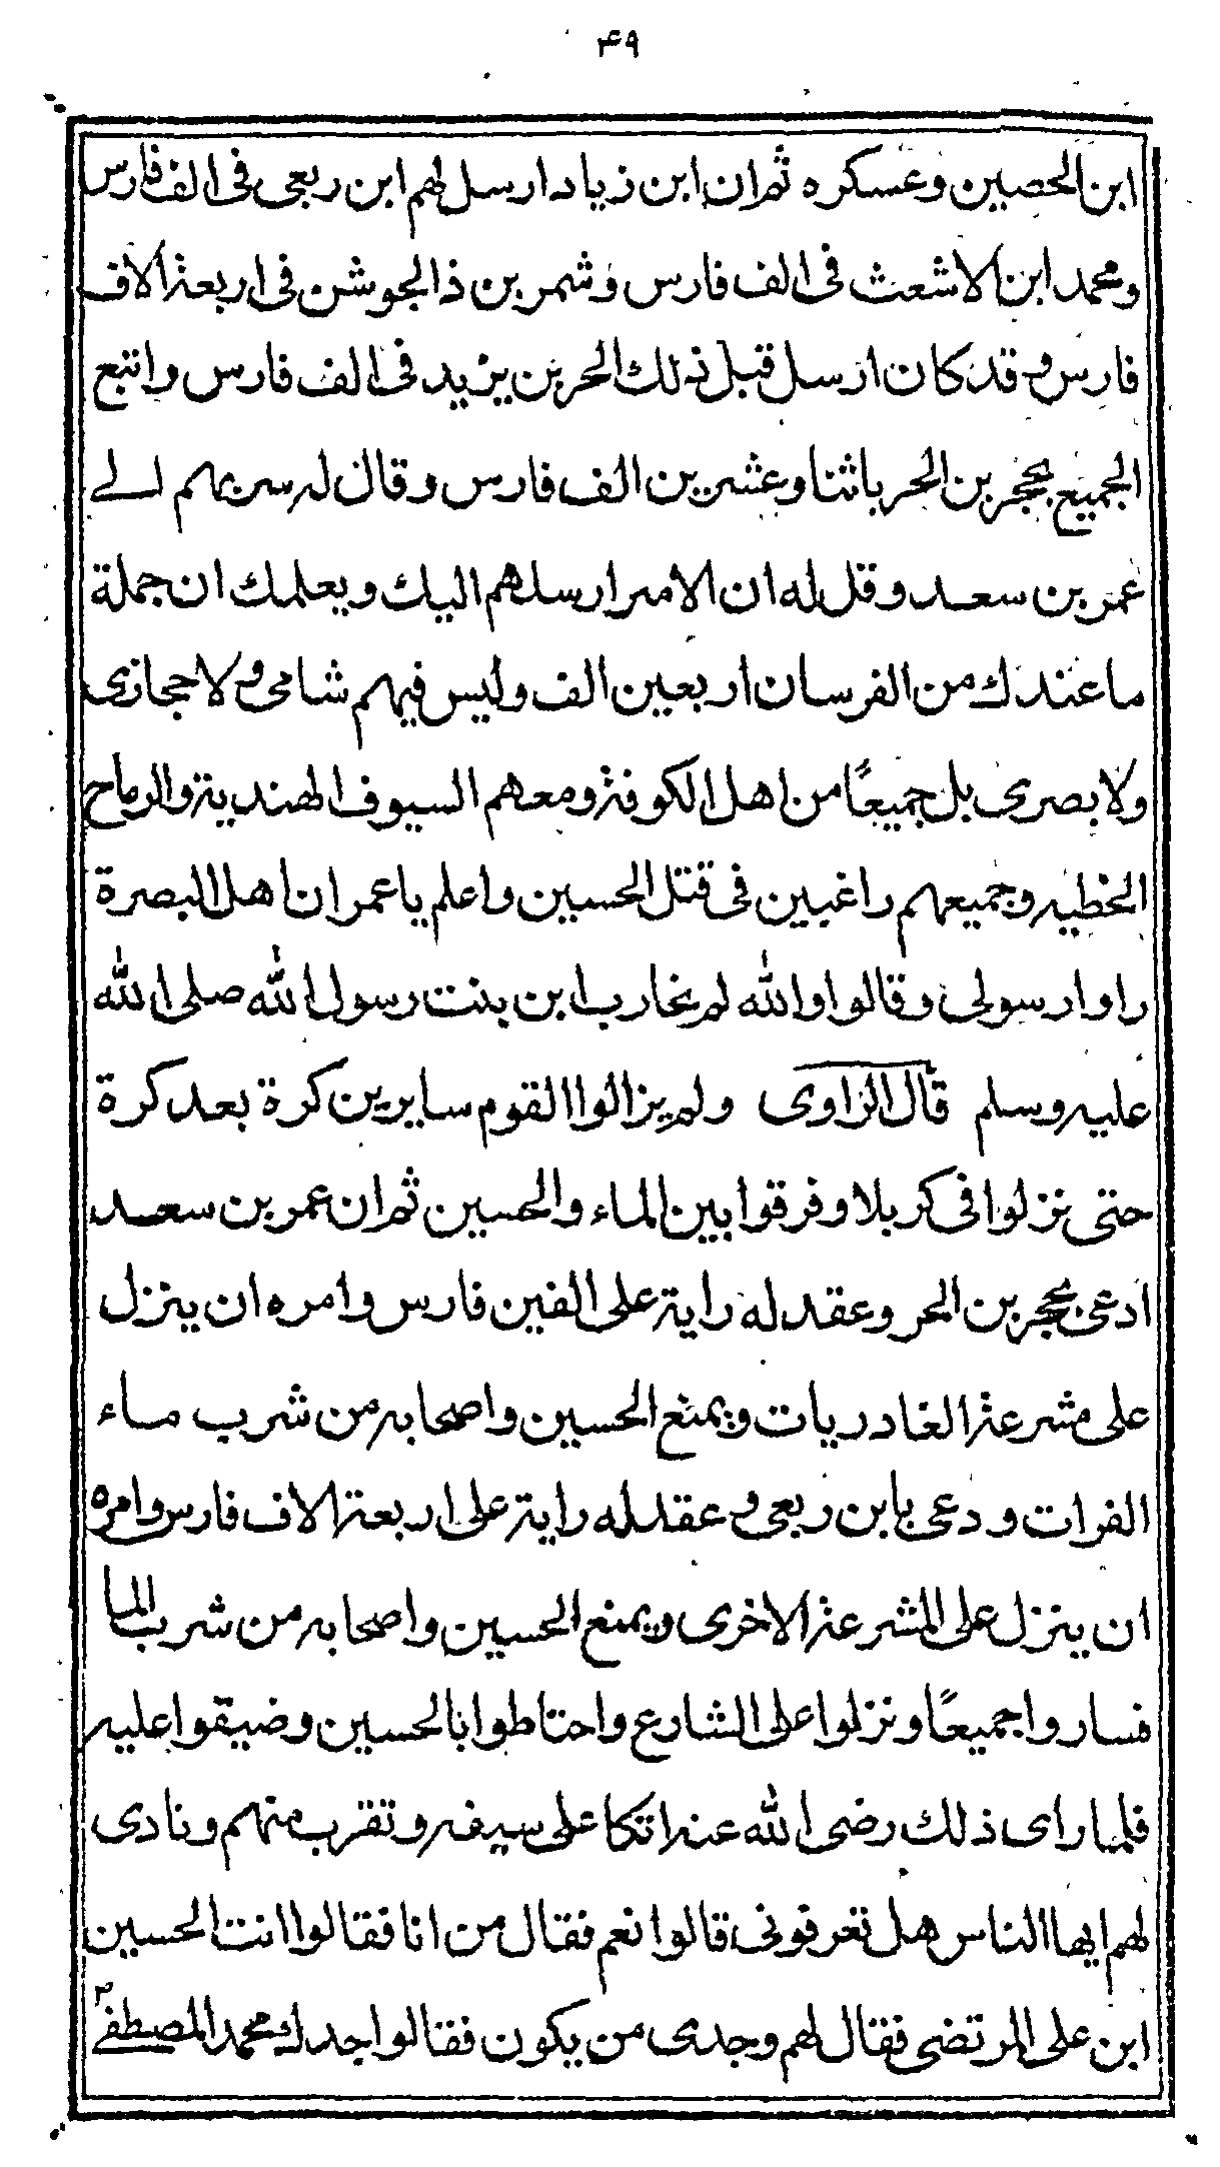 ۴۹
ابن الحصين وعسكره ثم ان ابن زياد ارسل لهم ابن ربعى فى الف فارس
ومحمد ابن الاشعث فى الف فارس وشمر بن ذالجوشن فى اربعة الاف
فارس وقد كان ارسل قبل ذلك الحر بن يزيد فى الف فارس واتبع
الجميع بحجر بن الحر باثنا وعشرين الف فارس وقال له سر بهم الے
عمر بن سعد وقل له ان الامير ارسلهم اليك ويعلمك ان جملة
ما عندك من الفرسان اربعين الف وليس فيهم شامى ولا حجازى
ولا بصرى بل جميعًا من اهل الكوفة ومعهم السيوف الهندية والرماح
الخطيه وجميعهم راغبين فى قتل الحسين واعلم يا عمر ان اهل البصرة
راوا رسولى وقالوا والله لم نحارب ابن بنت رسول الله صلى الله
عليه وسلم قال الراوى ولم يزالوا القوم سايرين كرة بعد كرة
حتى نزلوا فى كربلا وفرقوا بين الماء والحسين ثم ان عمر بن سعد
ادعى بحجر بن الحر وعقد له راية على الفين فارس وامره ان ينزل
على مشرعة الغادريات ويمنع الحسين واصحابه من شرب ماء
الفرات ودعى بابن ربعى وعقد له راية على اربعة الاف فارس وامره
ان ينزل على المشرعة الاخرى ويمنع الحسين واصحابه من شرب الما
فساروا جميعًا ونزلوا على الشارع واحتاطوا بالحسين وضيقوا عليه
فلما راى ذلك رضى الله عنه اتكا على سيفه وتقرب منهم ونادى
لهم ايها الناس هل تعرفونى قالوا نعم فقال من انا فقالوا انت الحسين
ابن على المرتضى فقال لهم وجدى من يكون فقالوا جدك محمد المصطفےٰ